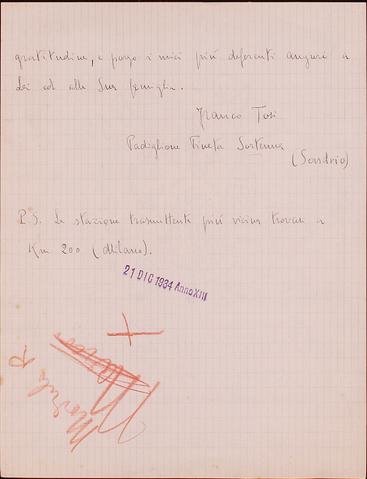 gratitudine, e porgo i miei più deferenti auguri a
Lei ed alla Sua famiglia.
Franco Tosi
Padiglione Pineta Sortenna
(Sondrio)
P.S. La stazione trasmittente più vicina trovasi a
Km 200 (Milano).
21 DIC 1934 Anno XIII